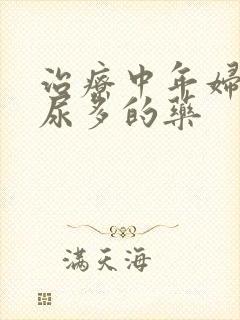 治療中年婦
尿多的藥
滿天海